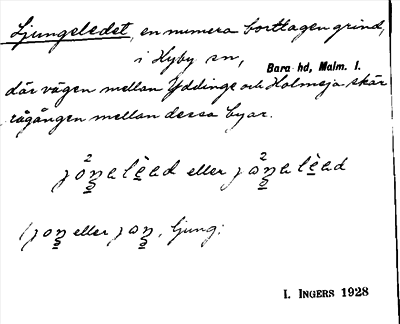 Ljungeledet, en numera borttagen grind,
i Hyby sn,
Bara hd, Malm. l.
där vägen mellan Yddinge och Holmeja skär
rågången mellan dessa byar.
eller
eller , ljung.
I. INGERS 1928